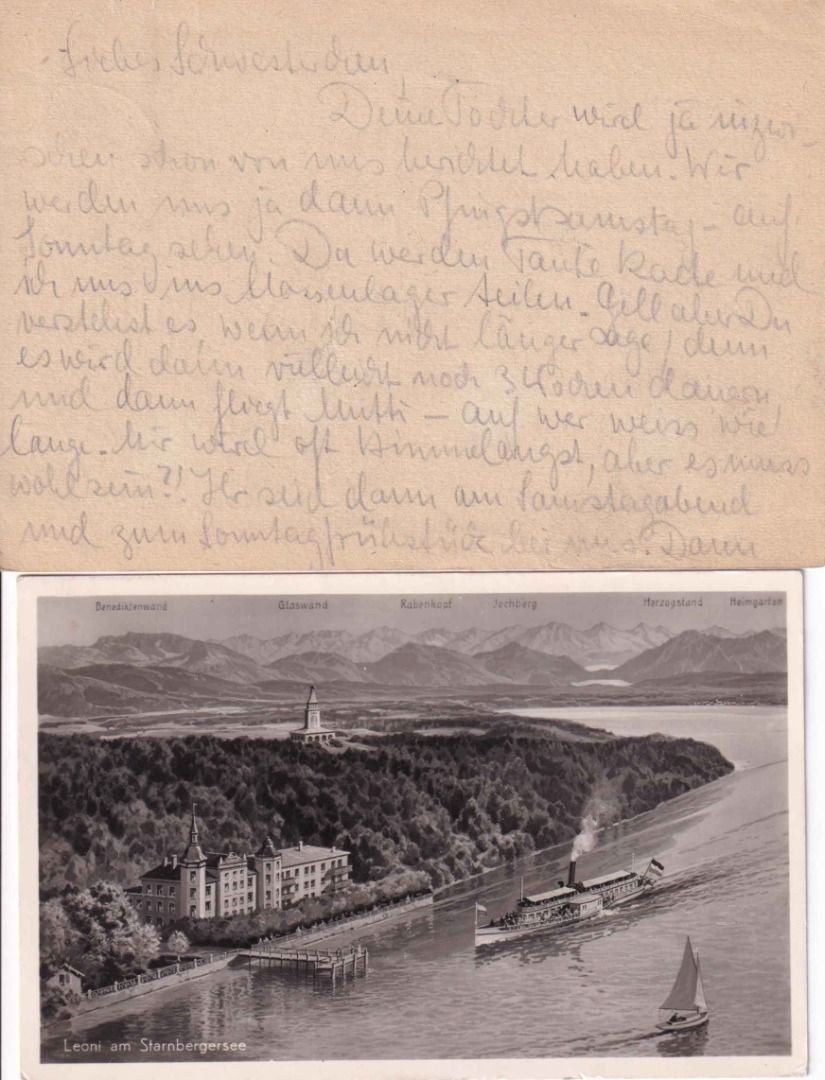 Liebes Schwesterchen,
Deine Tochter wird ja inzwi-
schen schon von uns berichtet haben. Wir
werden uns ja dann Pfingstsamstag - auf
Sonntag sehen. Da werden Tante Käthe und
ich uns ins Massenlager teilen. Gell aber Du
verstehst es, wenn ich nicht länger sage, denn
es wird dann vielleicht noch 3 Wochen dauern
und dann fliegt Mutti - auf wer weiss wie
lange. Mir wird oft Himmelangst, aber es muss
wohl sein?! Ihr seid dann am Samstagabend
und zum Sonntagfrühstück bei uns. Dann
Benediktenwand Glaswand Rabenkopf Jochberg Herzogstand Heimgarten
Leoni am Starnbergersee